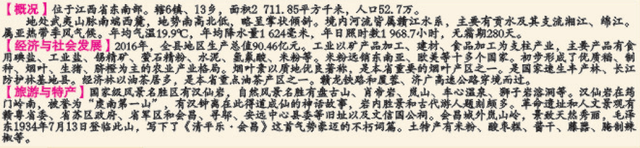 【概况】位于江西省东南部。辖6镇、13乡，面积2 711.85平方千米，人口52.7万。
地处武夷山脉南端西麓，地势南高北低，略呈掌状倾斜。境内河流皆属赣江水系，主要有贡水及其支流湘江、绵江。
属亚热带季风气候。年均气温19.9℃，年均降水量1 624毫米，年日照时数1 968.7小时，无霜期280天。
【经济与社会发展】2016年，全县地区生产总值90.46亿元。工业以矿产品加工、建材、食品加工为支柱产业，主要产品有食
用碘盐、工业盐、锡精矿、萤石精粉、水泥、氢氟酸、米粉等。米粉远销东南亚、欧美等十多个国家。初步形成了优质稻、制
种、烟叶、生猪、脐橙为主的农业产业格局。烟叶素以质地优良著称，是本省重要的烟叶产区之一。是国家速生丰产林、长江
防护林基地县。经济林以油茶居多，是本省重点油茶产区之一。赣龙铁路和厦蓉、济广高速公路穿境而过。
【旅游与特产】国家级风景名胜区有汉仙岩，自然风景名胜有盘古山、肖帝岩、岚山、车心温泉、狮子岩溶洞等。汉仙岩在筠
门岭南，被誉为“虔南第一山”，有汉钟离在此得道成仙的神话故事，岩内胜景和古代游人题刻颇多。革命遗址和人文景观有
粤赣省委、省苏区政府、省军区和会昌、寻邬、安远中心县委等旧址以及文信国公祠。会昌城外岚山岭，景致天然秀丽，毛泽
东1934年7月13日登临此山，写下了《清平乐·会昌》这首气势豪迈的不朽词篇。土特产有米粉、酸枣糕、酱干、藤器、腌制辣
椒等。